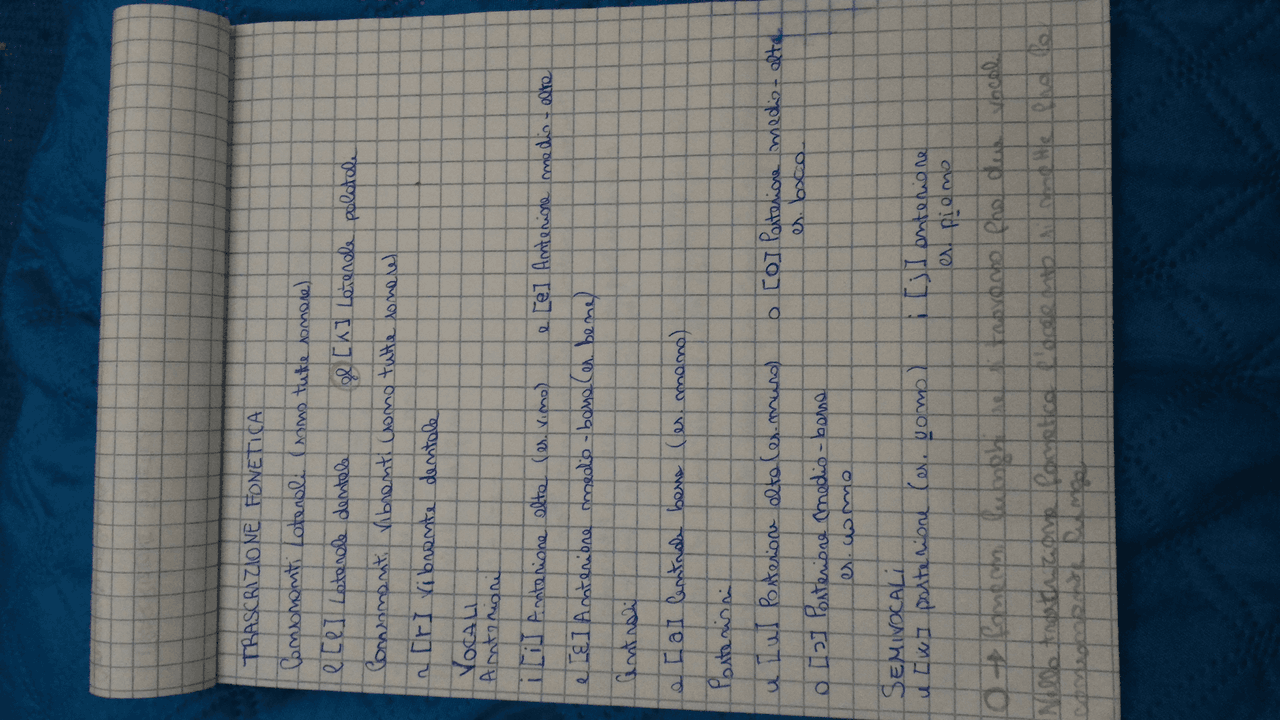 TRASCRIZIONE FONETICA
Consonanti laterali (sono tutte sonore)
l [l] Laterale dentale gl [ʎ] Laterale palatale
Consonanti vibranti (sono tutte sonore)
r [r] Vibrante dentale
VOCALI
Anteriori
i [i] Anteriore alta (es. vino) e [e] Anteriore medio-alta
e [ɛ] Anteriore medio-bassa (es. bene)
Centrali
a [a] Centrale bassa (es. mano)
Posteriori
u [u] Posteriore alta (es. muro) o [o] Posteriore medio-alta
es. bocca
o [ɔ] Posteriore (medio-bassa
es. uomo
SEMIVOCALI
u [w] posteriore (es. uomo) i [j] anteriore
es. piano
O → fonemi lunghi se si trovano fra due vocali
Nella trascrizione fonetica l'accento si mette fra la
consonante lunga